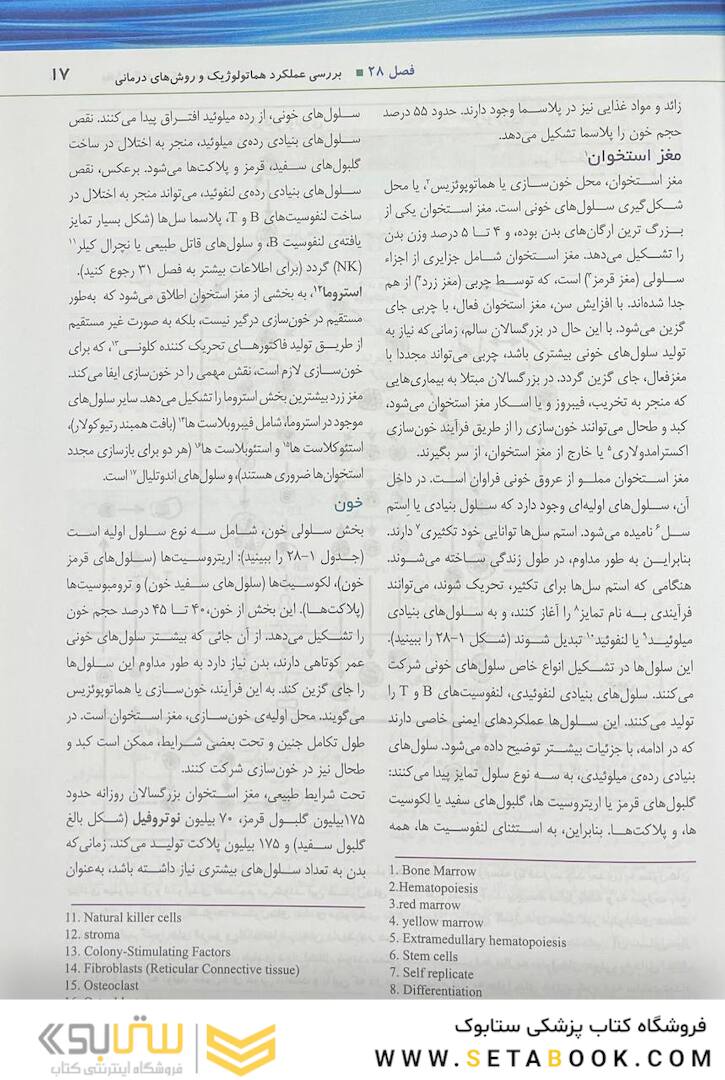 فصل ۲۸ ■ بررسی عملکرد هماتولوژیک و روش‌های درمانی ۱۷
زائد و مواد غذایی نیز در پلاسما وجود دارند. حدود ۵۵ درصد
حجم خون را پلاسما تشکیل می‌دهد.
مغز استخوان۱
مغز استخوان، محل خون‌سازی یا هماتوپوئزیس۲، یا محل
شکل‌گیری سلول‌های خونی است. مغز استخوان یکی از
بزرگ ترین ارگان‌های بدن بوده، و ۴ تا ۵ درصد وزن بدن
را تشکیل می‌دهد. مغز استخوان شامل جزایری از اجزاء
سلولی (مغز قرمز۳) است، که توسط چربی (مغز زرد۴) از هم
جدا شده‌اند. با افزایش سن، مغز استخوان فعال، با چربی جای
گزین می‌شود. با این حال در بزرگسالان سالم، زمانی‌که نیاز به
تولید سلول‌های خونی بیشتری باشد، چربی می‌تواند مجددا با
مغزفعال، جای گزین گردد. در بزرگسالان مبتلا به بیماری‌هایی
که منجر به تخریب، فیبروز و یا اسکار مغز استخوان می‌شود،
کبد و طحال می‌توانند خون‌سازی را از طریق فرآیند خون‌سازی
اکسترامدولاری۵ یا خارج از مغز استخوان، از سر بگیرند.
مغز استخوان مملو از عروق خونی فراوان است. در داخل
آن، سلول‌های اولیه‌ای وجود دارد که سلول بنیادی یا اِستم
سل۶ نامیده می‌شود. استم سل‌ها توانایی خود تکثیری۷ دارند.
بنابراین به طور مداوم، در طول زندگی ساخته می‌شوند.
هنگامی که استم سل‌ها برای تکثیر، تحریک شوند، می‌توانند
فرآیندی به نام تمایز۸ را آغاز کنند، و به سلول‌های بنیادی
میلوئید۹ یا لنفوئید۱۰ تبدیل شوند (شکل ۱-۲۸ را ببینید).
این سلول‌ها در تشکیل انواع خاص سلول‌های خونی شرکت
می‌کنند. سلول‌های بنیادی لنفوئیدی، لنفوسیت‌های B و T را
تولید می‌کنند. این سلول‌ها عملکردهای ایمنی خاصی دارند
که در ادامه، با جزئیات بیشتر توضیح داده می‌شود. سلول‌های
بنیادی رده‌ی میلوئیدی، به سه نوع سلول تمایز پیدا می‌کنند:
گلبول‌های قرمز یا اریتروسیت ها، گلبول‌های سفید یا لکوسیت
ها، و پلاکت‌ها. بنابراین، به استثنای لنفوسیت ها، همه
1. Bone Marrow
2.Hematopoiesis
3.red marrow
4. yellow marrow
5. Extramedullary hematopoiesis
6. Stem cells
7. Self replicate
8. Differentiation
سلول‌های خونی، از رده میلوئید افتراق پیدا می‌کنند. نقص
سلول‌های بنیادی رده‌ی میلوئید، منجر به اختلال در ساخت
گلبول‌های سفید، قرمز و پلاکت‌ها می‌شود. برعکس، نقص
سلول‌های بنیادی رده‌ی لنفوئید، می‌تواند منجر به اختلال در
ساخت لنفوسیت‌های B و T، پلاسما سل‌ها (شکل بسیار تمایز
یافته‌ی لنفوسیت B، و سلول‌های قاتل طبیعی یا نچرال کیلر۱۱
(NK) گردد (برای اطلاعات بیشتر به فصل ۳۱ رجوع کنید).
استروما۱۲، به بخشی از مغز استخوان اطلاق می‌شود که به‌طور
مستقیم در خون‌سازی درگیر نیست، بلکه به صورت غیر مستقیم
از طریق تولید فاکتورهای تحریک کننده کلونی۱۳، که برای
خون‌سازی لازم است، نقش مهمی را در خون‌سازی ایفا می‌کند.
مغز زرد بیشترین بخش استروما را تشکیل می‌دهد. سایر سلول‌های
موجود در استروما، شامل فیبروبلاست ها۱۴ (بافت همبند رتیوکولار)،
استئوکلاست ها۱۵ و استئوبلاست ها۱۶ (هر دو برای بازسازی مجدد
استخوان‌ها ضروری هستند)، و سلول‌های اندوتلیال۱۷ است.
خون
بخش سلولی خون، شامل سه نوع سلول اولیه است
(جدول ۱-۲۸ را ببینید): اریتروسیت‌ها (سلول‌های قرمز
خون)، لکوسیت‌ها (سلول‌های سفید خون) و ترومبوسیت‌ها
(پلاکت‌ها). این بخش از خون، ۴۰ تا ۴۵ درصد حجم خون
را تشکیل می‌دهد. از آن جائی که بیشتر سلول‌های خونی
عمر کوتاهی دارند، بدن نیاز دارد به طور مداوم این سلول‌ها
را جای گزین کند. به این فرآیند، خون‌سازی یا هماتوپوئزیس
می‌گویند. محل اولیه‌ی خون‌سازی، مغز استخوان است. در
طول تکامل جنین و تحت بعضی شرایط، ممکن است کبد و
طحال نیز در خون‌سازی شرکت کنند.
تحت شرایط طبیعی، مغز استخوان بزرگسالان روزانه حدود
۱۷۵بیلیون گلبول قرمز، ۷۰ بیلیون نوتروفیل (شکل بالغ
گلبول سفید) و ۱۷۵ بیلیون پلاکت تولید می‌کند. زمانی‌که
بدن به تعداد سلول‌های بیشتری نیاز داشته باشد، به‌عنوان
11. Natural killer cells
12. stroma
13. Colony-Stimulating Factors
14. Fibroblasts (Reticular Connective tissue)
15. Osteoclast
فروشگاه کتاب پزشکی ستابوک
WWW.SETABOOK.COM
ستابوک
فروشگاه اینترنتی کتاب